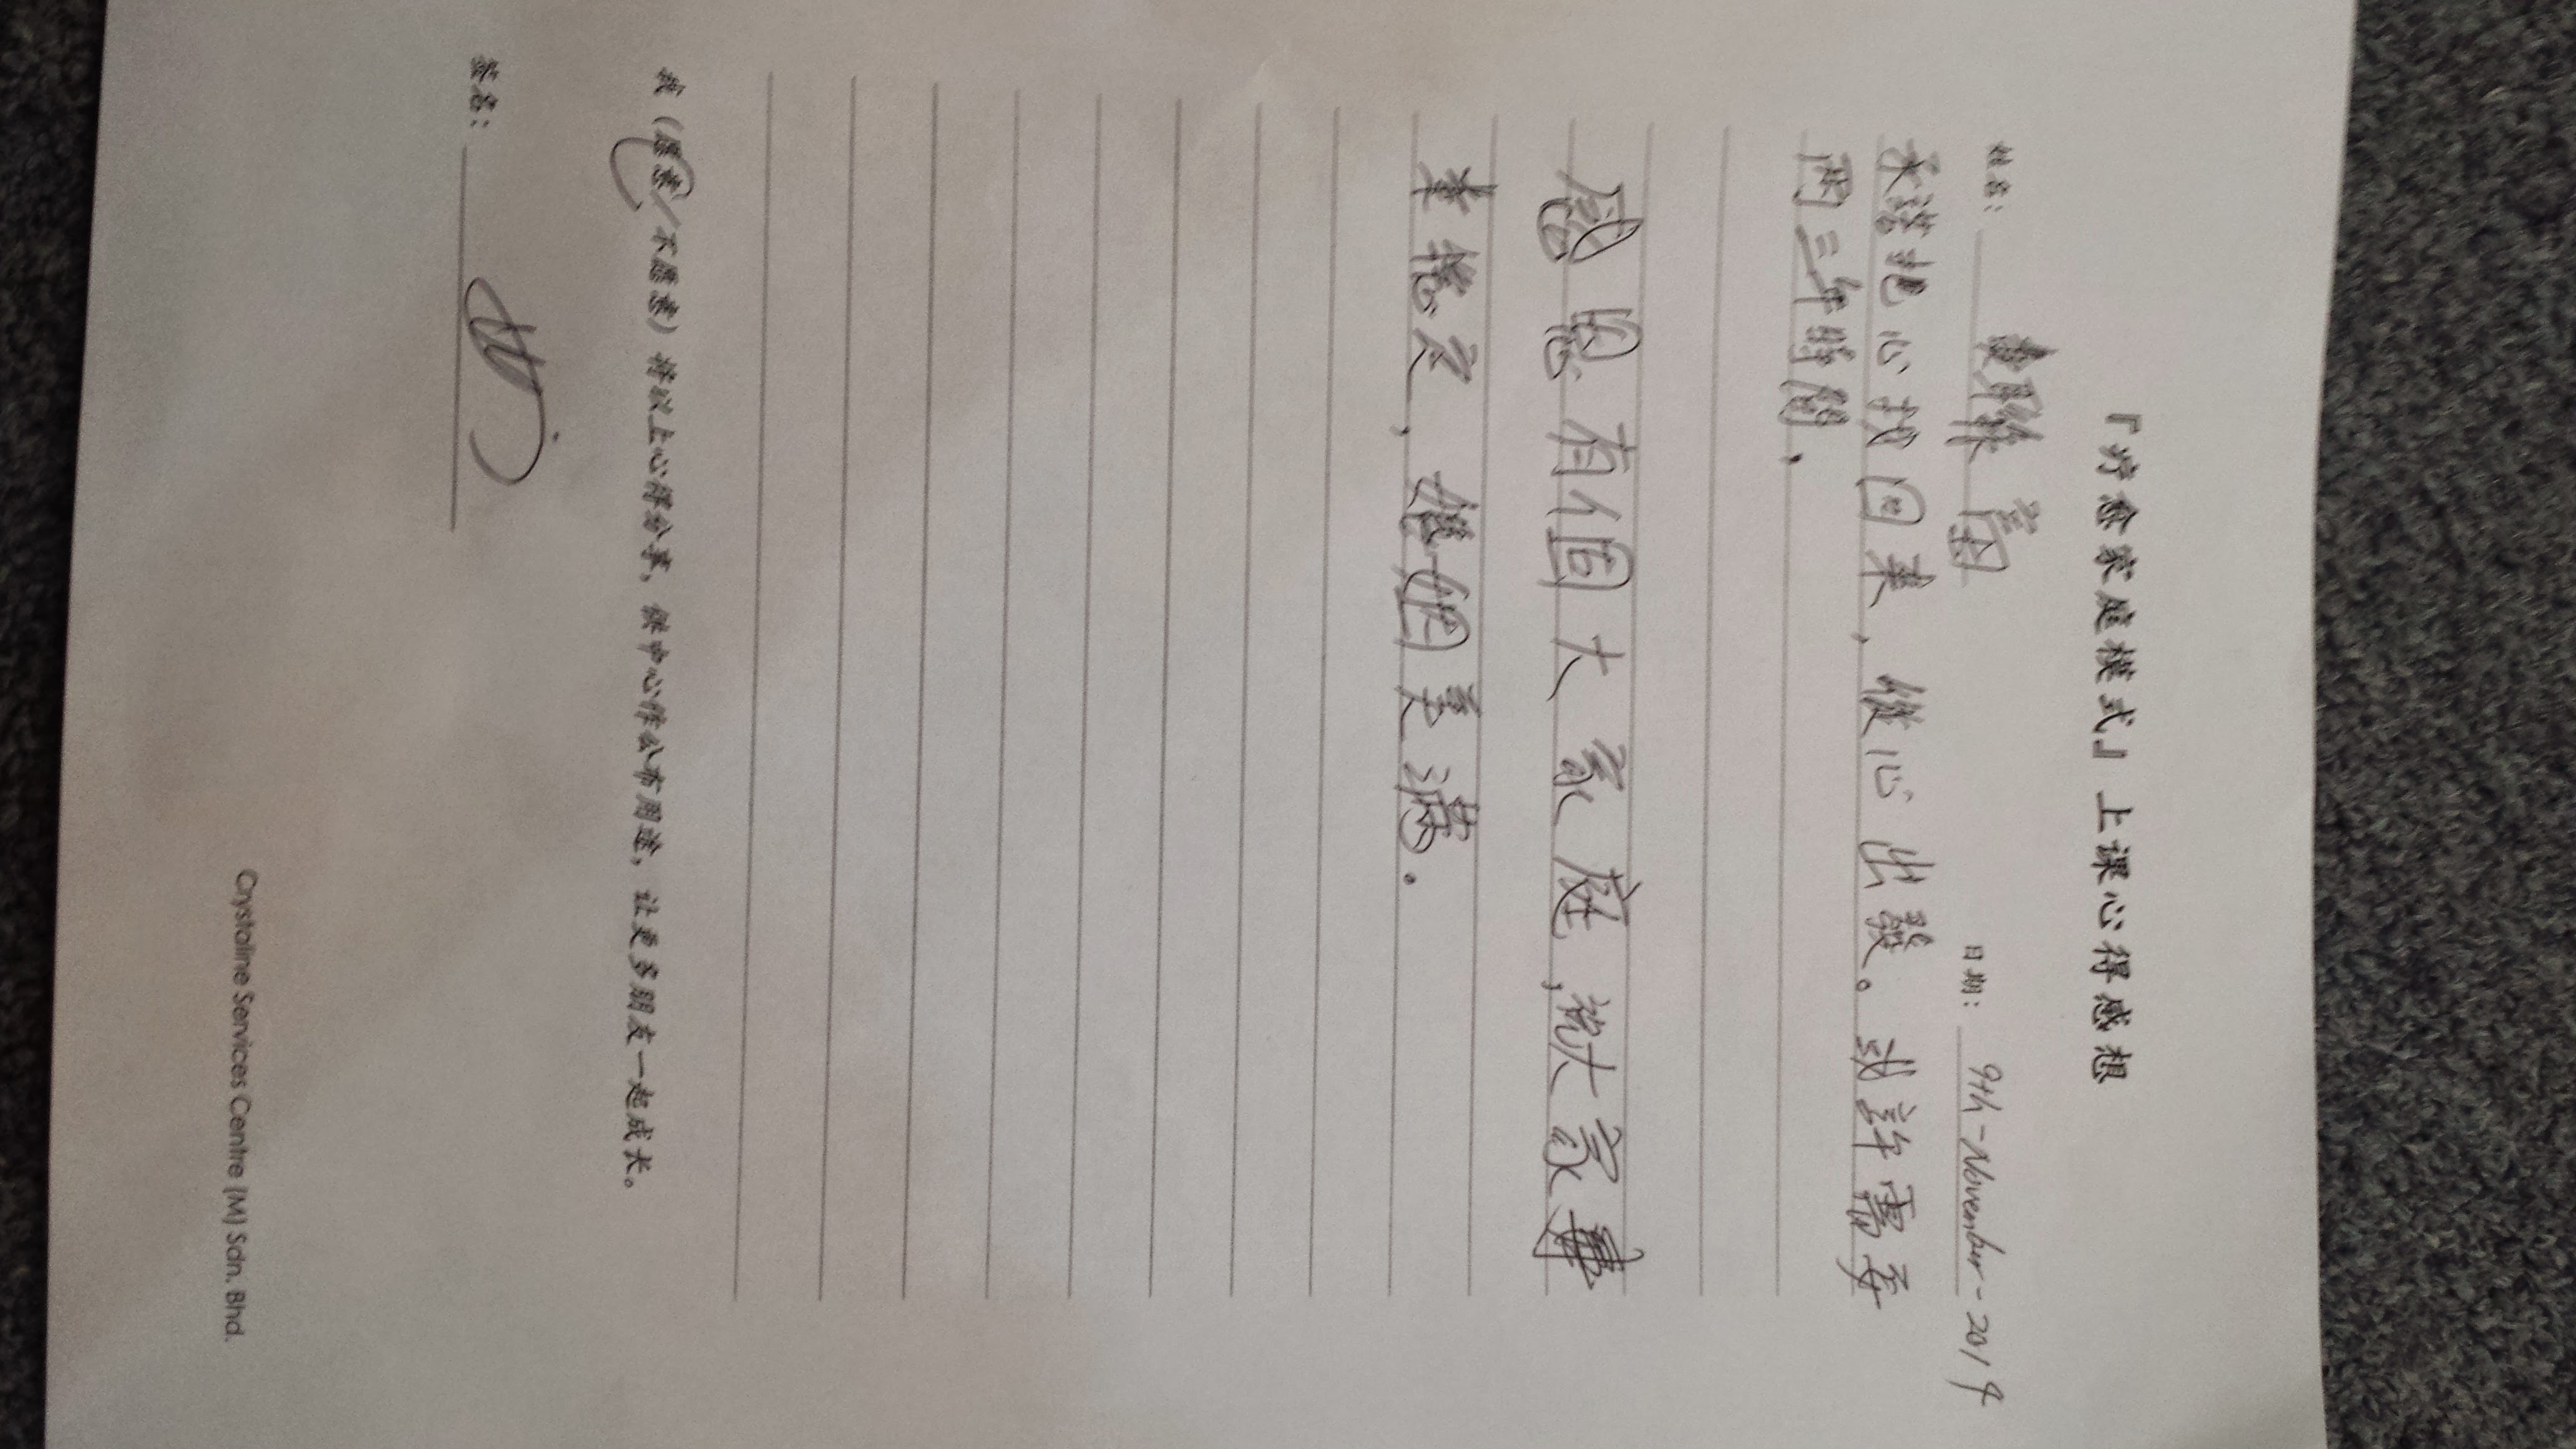 『疗愈家庭模式』上课心得感想
姓名： 日期： 9th-November-2014
承諾把心找回来，從心出發。或許需要
兩三年時間，
感恩有個大家庭，祝大家事
事惦定，婚姻美满。
我（愿意/不愿意）将以上心得分享，供中心作公布用途，让更多朋友一起成长。
签名：
Crystaline Services Centre (M) Sdn. Bhd.